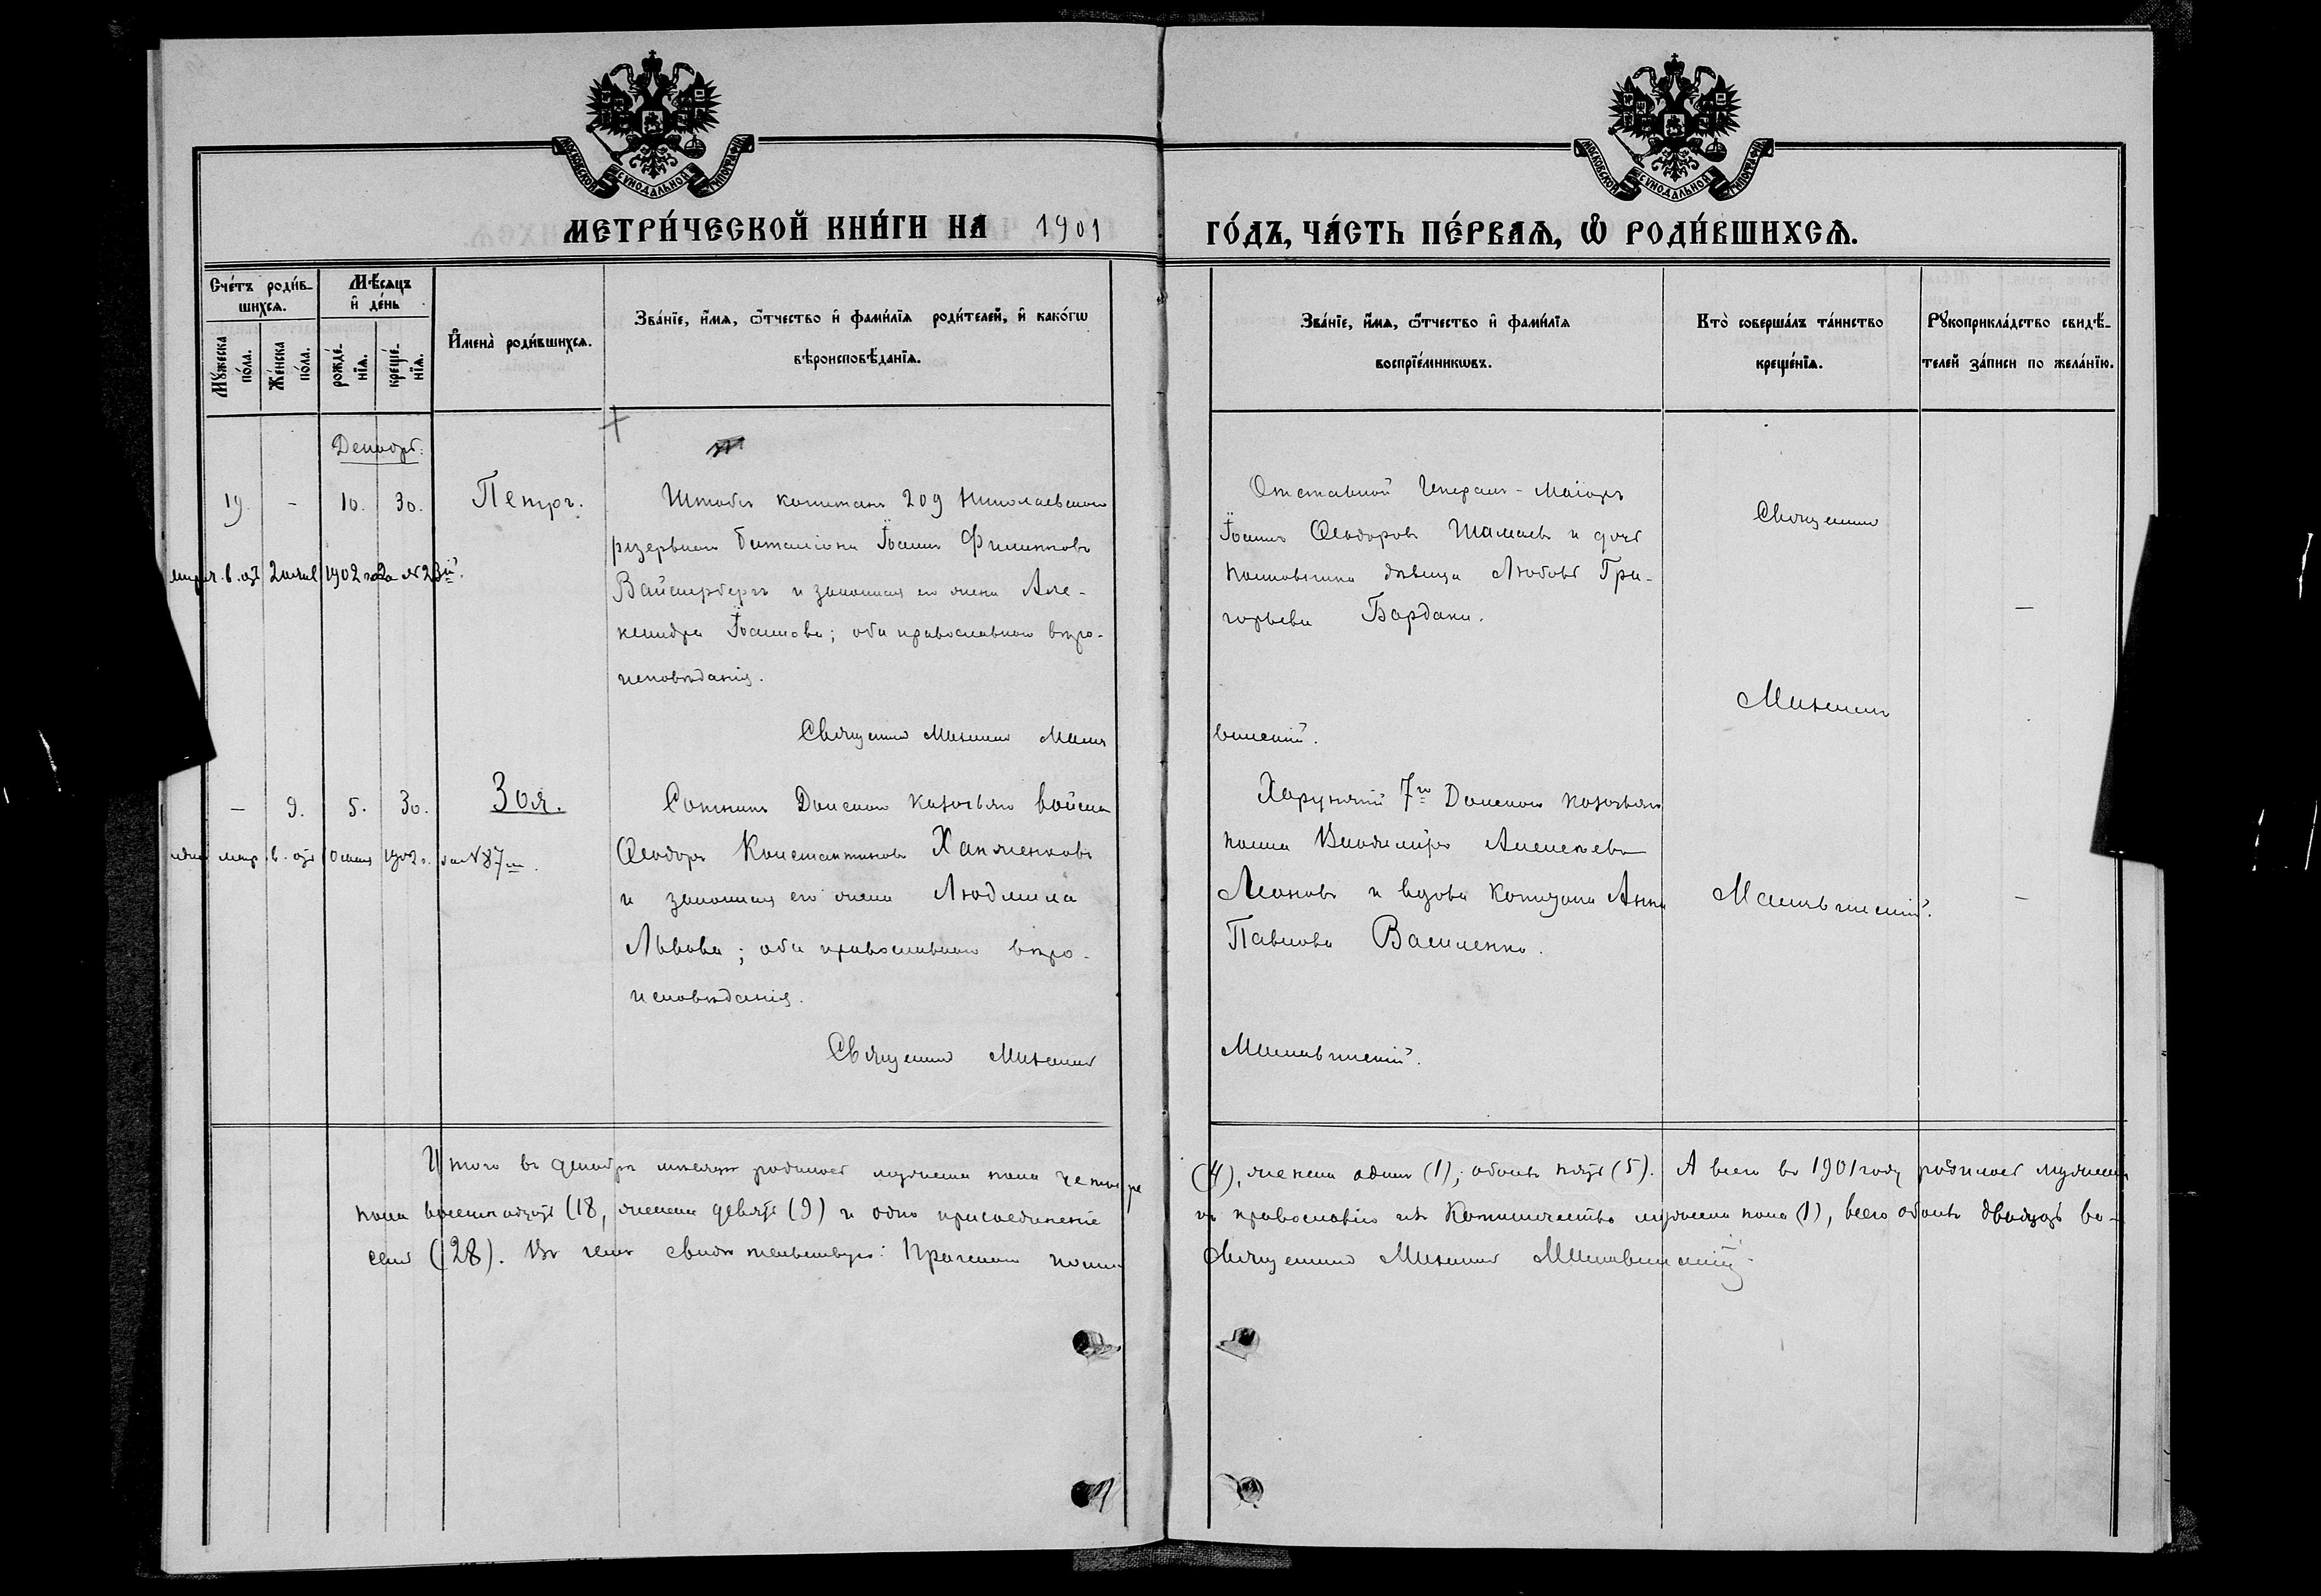 МОСКОВСКОЙ СѴНОДАЛЬНОЙ ТИПОГРАФІИ
МОСКОВСКОЙ СѴНОДАЛЬНОЙ ТИПОГРАФІИ
МЕТРИ́ЧЕСКОЙ КНИ́ГИ НА 1901 ГО́ДЪ, ЧА́СТЬ ПЕ́РВАѦ, Ѽ РОДИ́ВШИХСѦ.
Сче́тъ роди́в-
шихсѧ.
Мꙋ́жеска по́ла.
Же́нска по́ла.
Мѣ́сѧцъ и҆ де́нь
рожде́-нїѧ.
креще́-нїѧ.
И҆мена̀ роди́вшихсѧ.
Зва́нїе, и҆́мѧ, ѻ҆́тчество и҆ фами́лїѧ роди́телей, и҆ како́гѡ
вѣроисповѣ́данїѧ.
Зва́нїе, и҆́мѧ, ѻ҆́тчество и҆ фами́лїѧ
воспрїе́мникѡвъ.
Кто̀ соверша́лъ та́инство
креще́нїѧ.
Рꙋкоприкла́дство свидѣ́-
телей за́писи по жела́нїю.
Декабрь.
19. - 10. 30. Петръ.
Штабсъ капитанъ 209 Николаевскаго
резервнаго баталіона Іоаннъ Филипповъ
Вайсенбергъ и законная его жена Але-
ксандра Іоаннова; оба православнаго вѣро-
исповѣданія.
Священникъ Михаилъ
Отставной Генералъ-Маіоръ
Іоаннъ Ѳеодоровъ Шамаевъ и дочь
дѣвица Любовь Гри-
горьева Бардаки.
Священникъ
Михаилъ
—
1902 года № 23й.
— 9. 5. 30. Зоя.
Сотникъ Донскаго казачьяго войска
Ѳеодоръ Константиновъ Ханженковъ
и законная его жена Людмила
Львова; оба православнаго вѣро-
исповѣданія.
Священникъ Михаилъ
Хорунжій 7го Донскаго казачьяго
полка Владиміръ Алексѣевъ
Леоновъ и вдова Анна
Павлова Василенко.
—
1902 г. за № 87
Итого въ декабрѣ мѣсяцѣ родилось мужеска пола четыре (4), женска одинъ (1); обоего пять (5). А всего въ 1901 году родилось мужеска
пола восемнадцать (18, женска девять (9) и одно присоединеніе къ православію изъ Католичества мужеска пола (1), всего обоего двадцать во-
семь (28). Въ чемъ свидѣтельствую: Священникъ Михаилъ